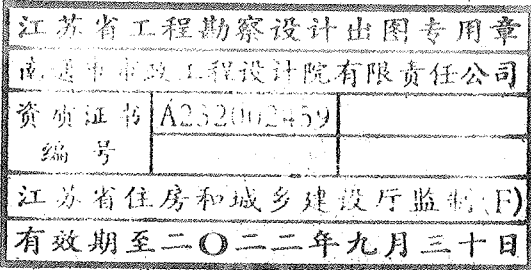 江苏省工程勘察设计出图专用章
南通市市政工程设计院有限责任公司
资质证书 A232002459
编号
江苏省住房和城乡建设厅监制(F)
有效期至二〇二二年九月三十日